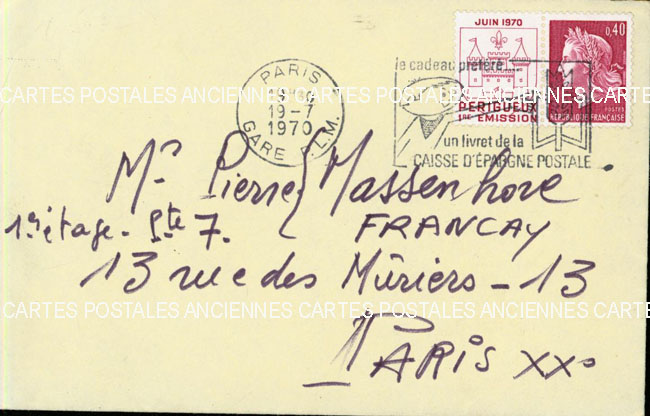 JUIN 1970
PERIGUEUX
1ÈRE EMISSION
0,40
POSTES
REPUBLIQUE FRANÇAISE
PARIS
19-7
1970
GARE P.L.M.
le cadeau préféré...
un livret de la
CAISSE D'ÉPARGNE POSTALE
CARTES POSTALES ANCIENNES CARTES POSTALES ANCIENNES CARTE
Mr Pierre Massenhove
1er étage - Pte 7. FRANCAY
13 rue des Mûriers - 13
CARTES POSTALES ANCIENNES CARTES POSTALES ANCIENNES CARTE
PARIS XXe